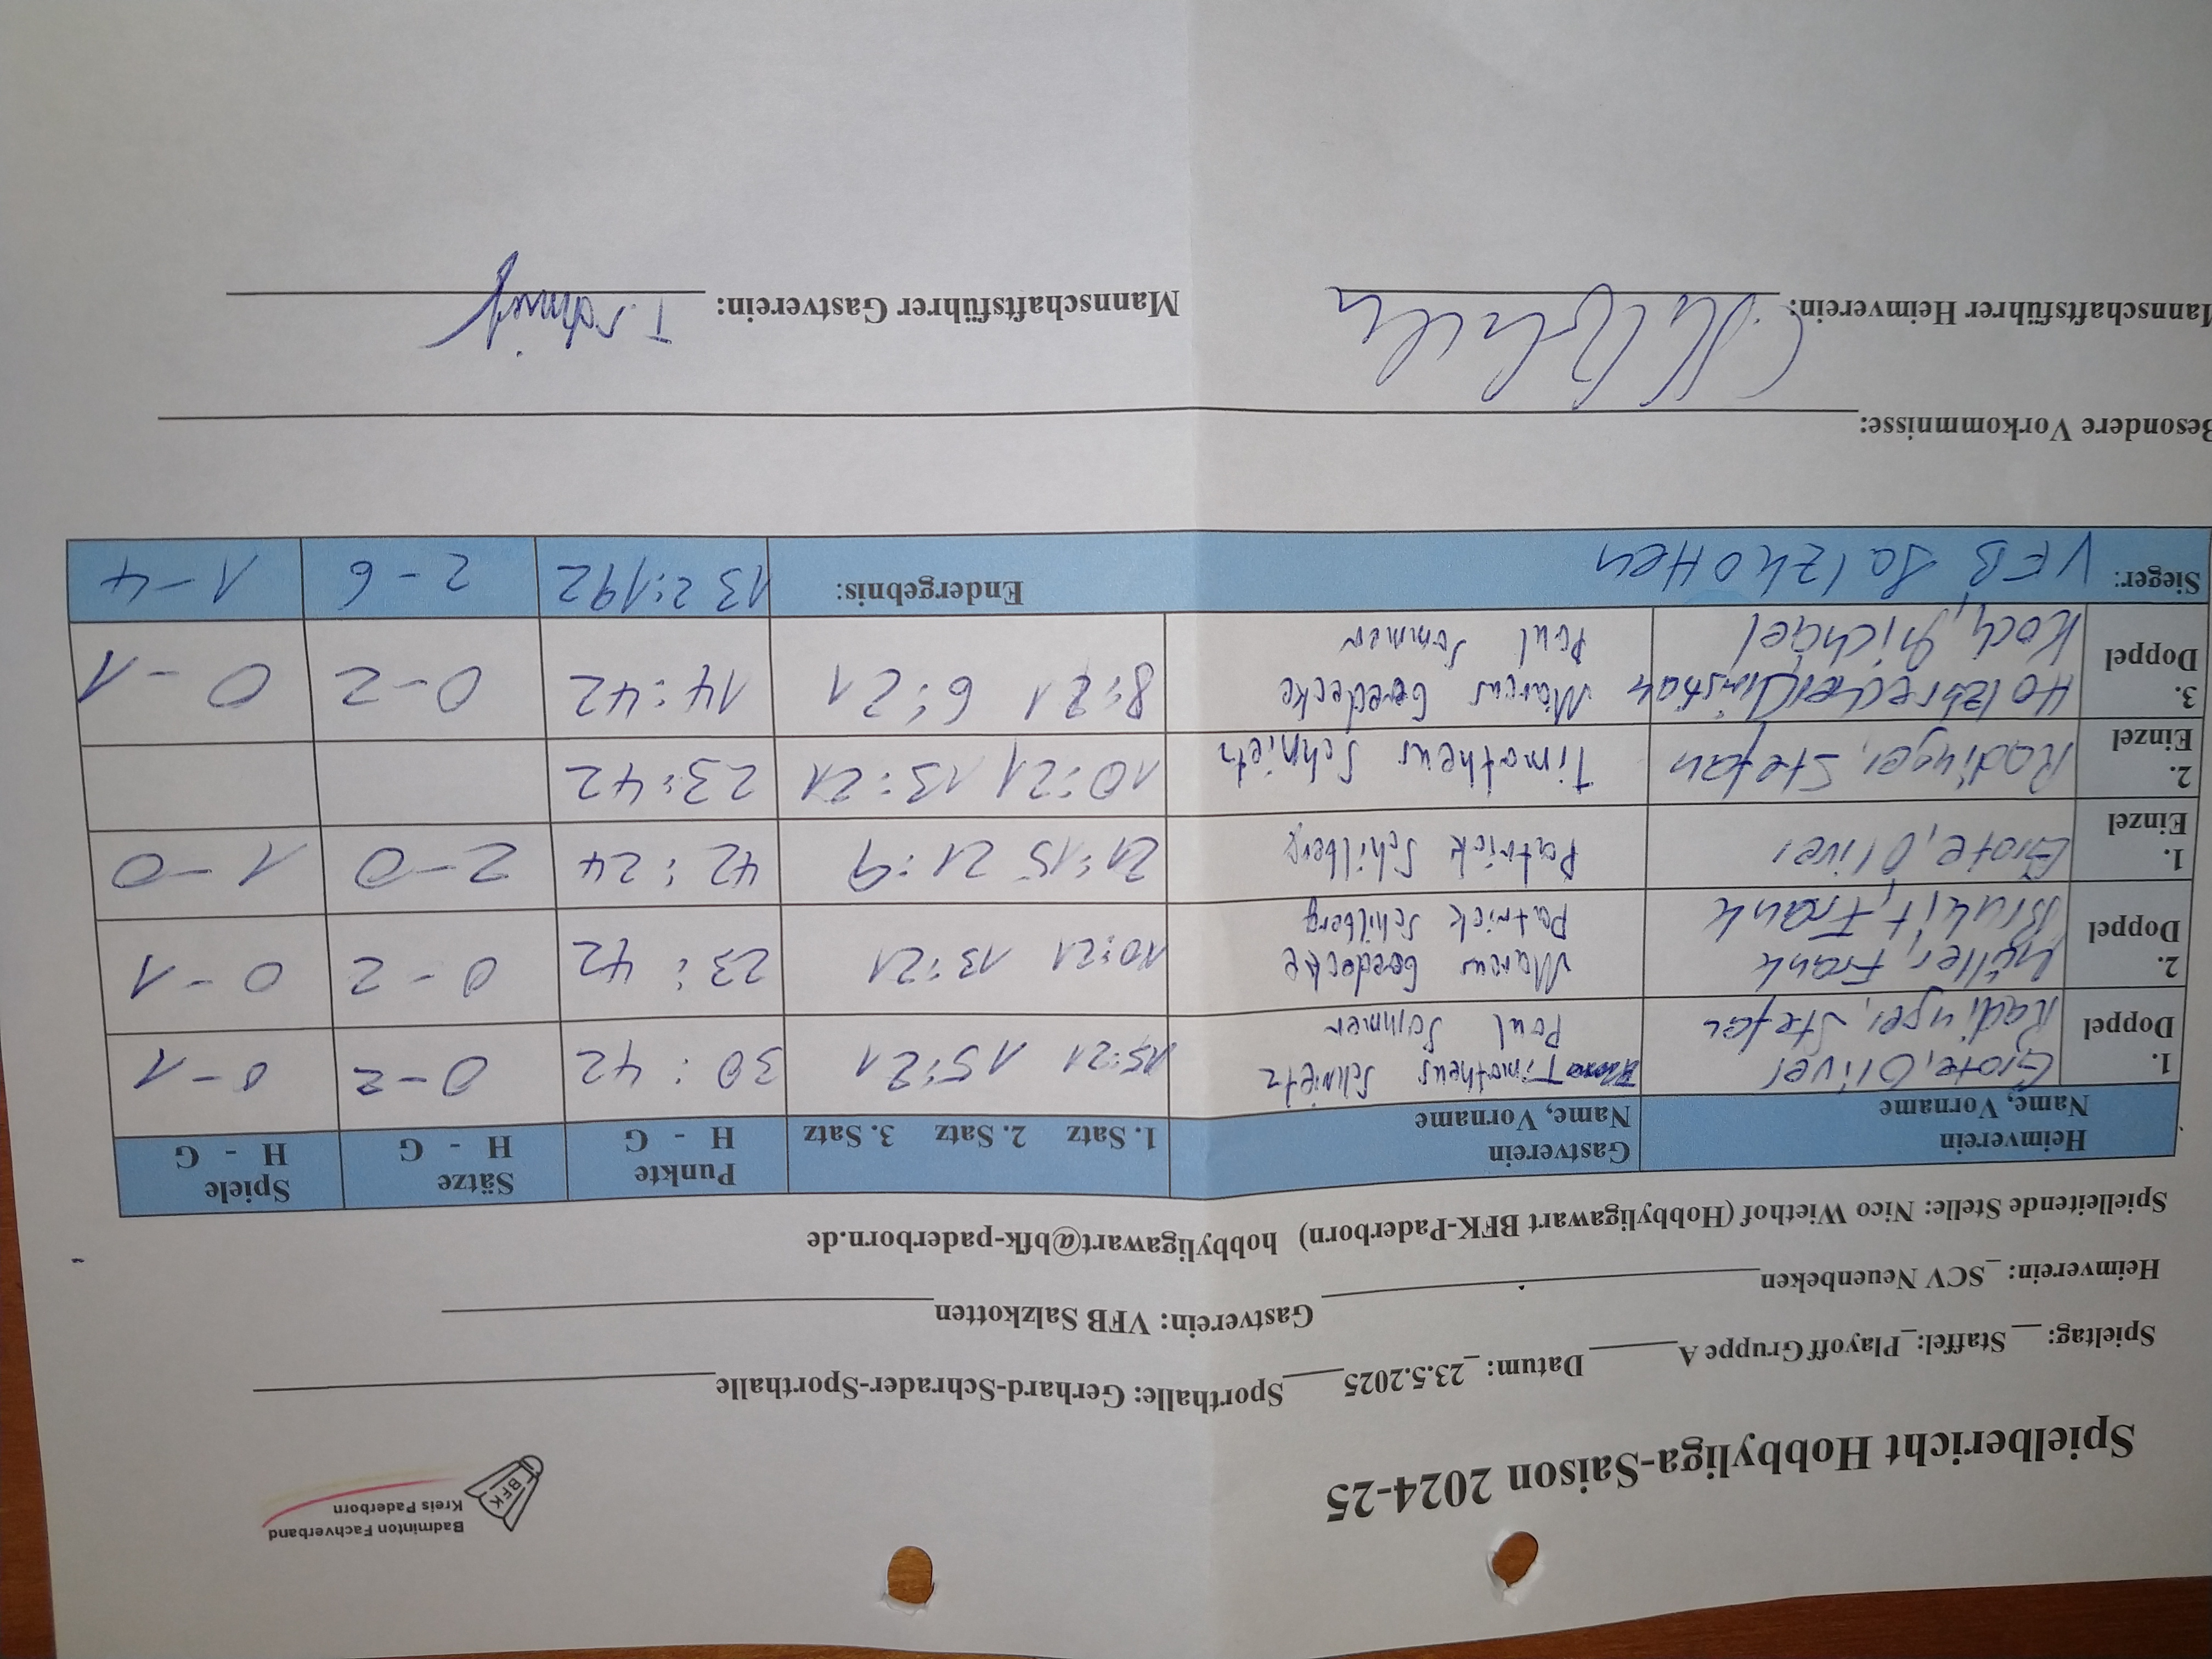 Badminton Fachverband
Kreis Paderborn
BFK
Spielbericht Hobbyliga-Saison 2024-25
Spieltag: __ Staffel:_Playoff Gruppe A_____ Datum: _23.5.2025____Sporthalle: Gerhard-Schrader-Sporthalle
Heimverein: _SCV Neuenbeken Gastverein: VFB Salzkotten
Spielleitende Stelle: Nico Wiethof (Hobbyligawart BFK-Paderborn) hobbyligawart@bfk-paderborn.de
Heimverein Gastverein 1. Satz 2. Satz 3. Satz Punkte Sätze Spiele
Name, Vorname Name, Vorname H - G H - G H - G
1. Grote, Oliver Timotheus Schnietz 15:21 15:21 30 : 42 0-2 0-1
Doppel Radinger, Stefan Paul Sommer
2. Müller, Frank Marcus Goedecke 10:21 13:21 23 : 42 0-2 0-1
Doppel Frank Patrick Schilberg
1. Grote, Oliver Patrick Schilberg 21:15 21:9 42 : 24 2-0 1-0
Einzel
2. Radinger, Stefan Timotheus Schnietz 10:21 13:21 23:42
Einzel
3. Holzbrecher, Christian Marcus Goedecke 8:21 6:21 14:42 0-2 0-1
Doppel Koch, Michael Paul Sommer
Sieger: VFB Salzkotten Endergebnis: 132:192 2-6 1-4
Besondere Vorkommnisse:
Mannschaftsführer Heimverein: Mannschaftsführer Gastverein: T. Schnietz